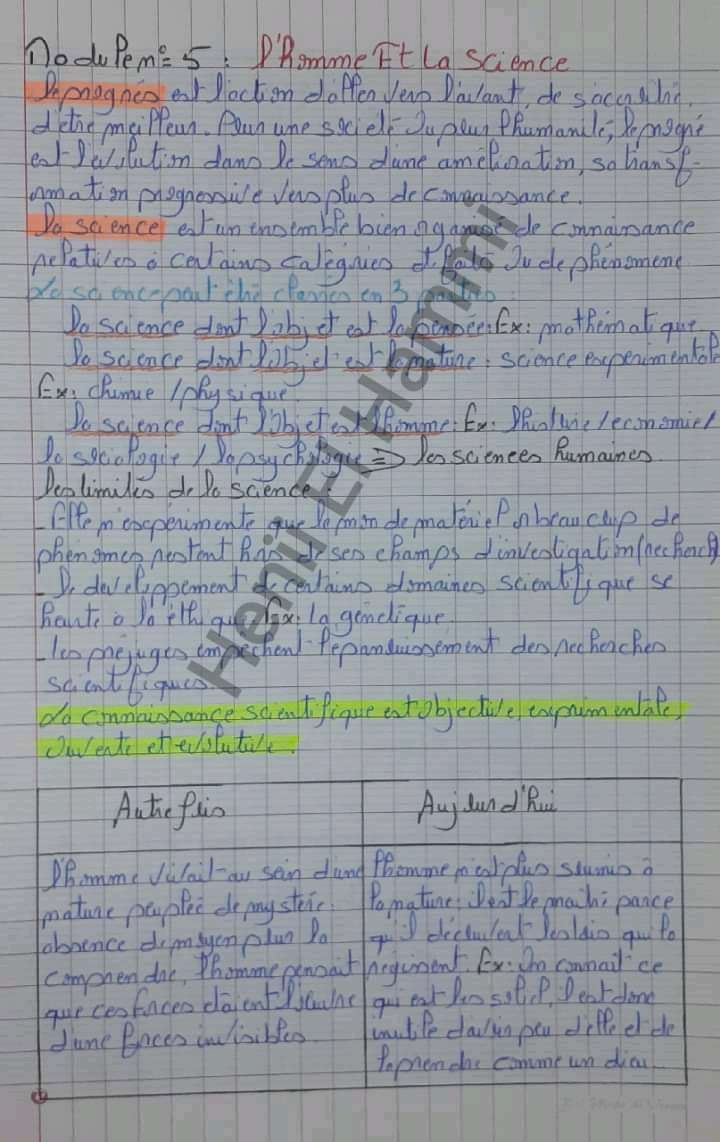 Module n° 5 : l'Homme Et La Science
Le progrés est l'action d'aller vers l'avant, de s'accroître,
d'être meilleur. Pour une societé ou pour l'humanité, le progré
est l'évolution dans le sens d'une amélioration, sa transf-
ormation progressive vers plus de connaissance.
La science est un ensemble bien organisé de connaissance
relatives à certains catégories de faits ou de phénomène
La science peut être classées en 3 parties :
la science dont l'objet est la pensée : Ex : mathématique
la science dont l'objet est la nature : science experimentale
Ex : chimie / physique
la science dont l'objet est l'homme : Ex : l'histoire / economie /
la sociologie / la psychologie => les sciences humaines.
Les limites de la science :
- Elle n'expérimente que le monde matériel or beaucoup de
phénomes restent hors de ses champs d'investigation (recherch)
- Le developpement de certains domaines scientifique se
heurte à la éthique Ex : la génétique
- les préjuges empêchent l'épanouissement des recherches
scientifiques.
La connaissance scientifique est objective, exprimentale,
ouverte et evolutive.
Autrefois
Aujourd'hui
l'homme vivait au sein d'une
nature peuplée de mystère.
absence de moyen pour la
comprendre, l'homme pensait
que ces forces étaient l'œuvre
d'une forces invisibles.
l'homme n'est plus soumis à
la nature : il est le maître parce
qu'il découvert les lois qui la
regissent. Ex : On connait ce
qui est le soleil, il est donc
inutile d'avoir peur d'elle et de
la prendre comme un dieu.
Henii El Hamimi